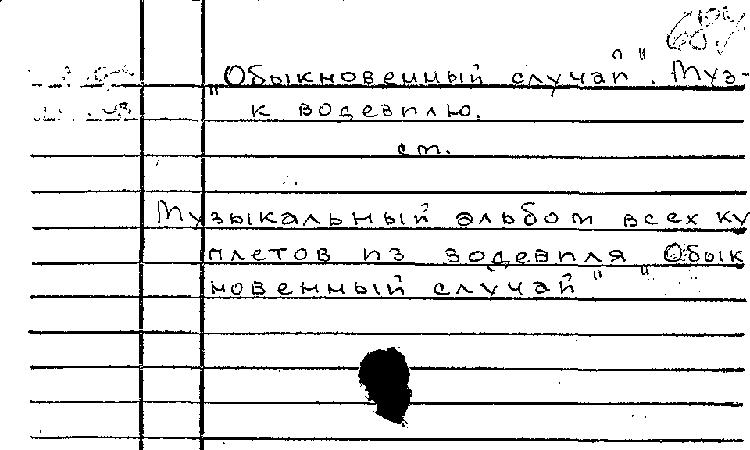 „Обыкновенный случай". Муз-
к водевилю.
ст.
Музыкальный альбом всех ку
плетов из водевиля „Обык
новенный случай"